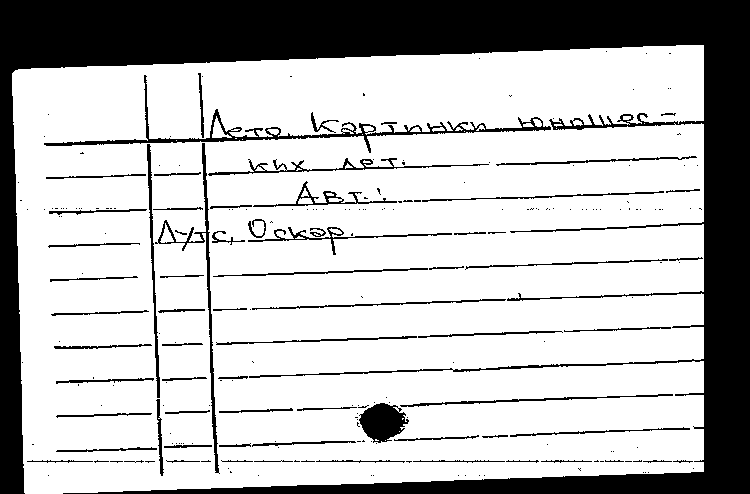 Лето. Картинки юношес-
ких лет.
Авт.:
Лутс, Оскар.